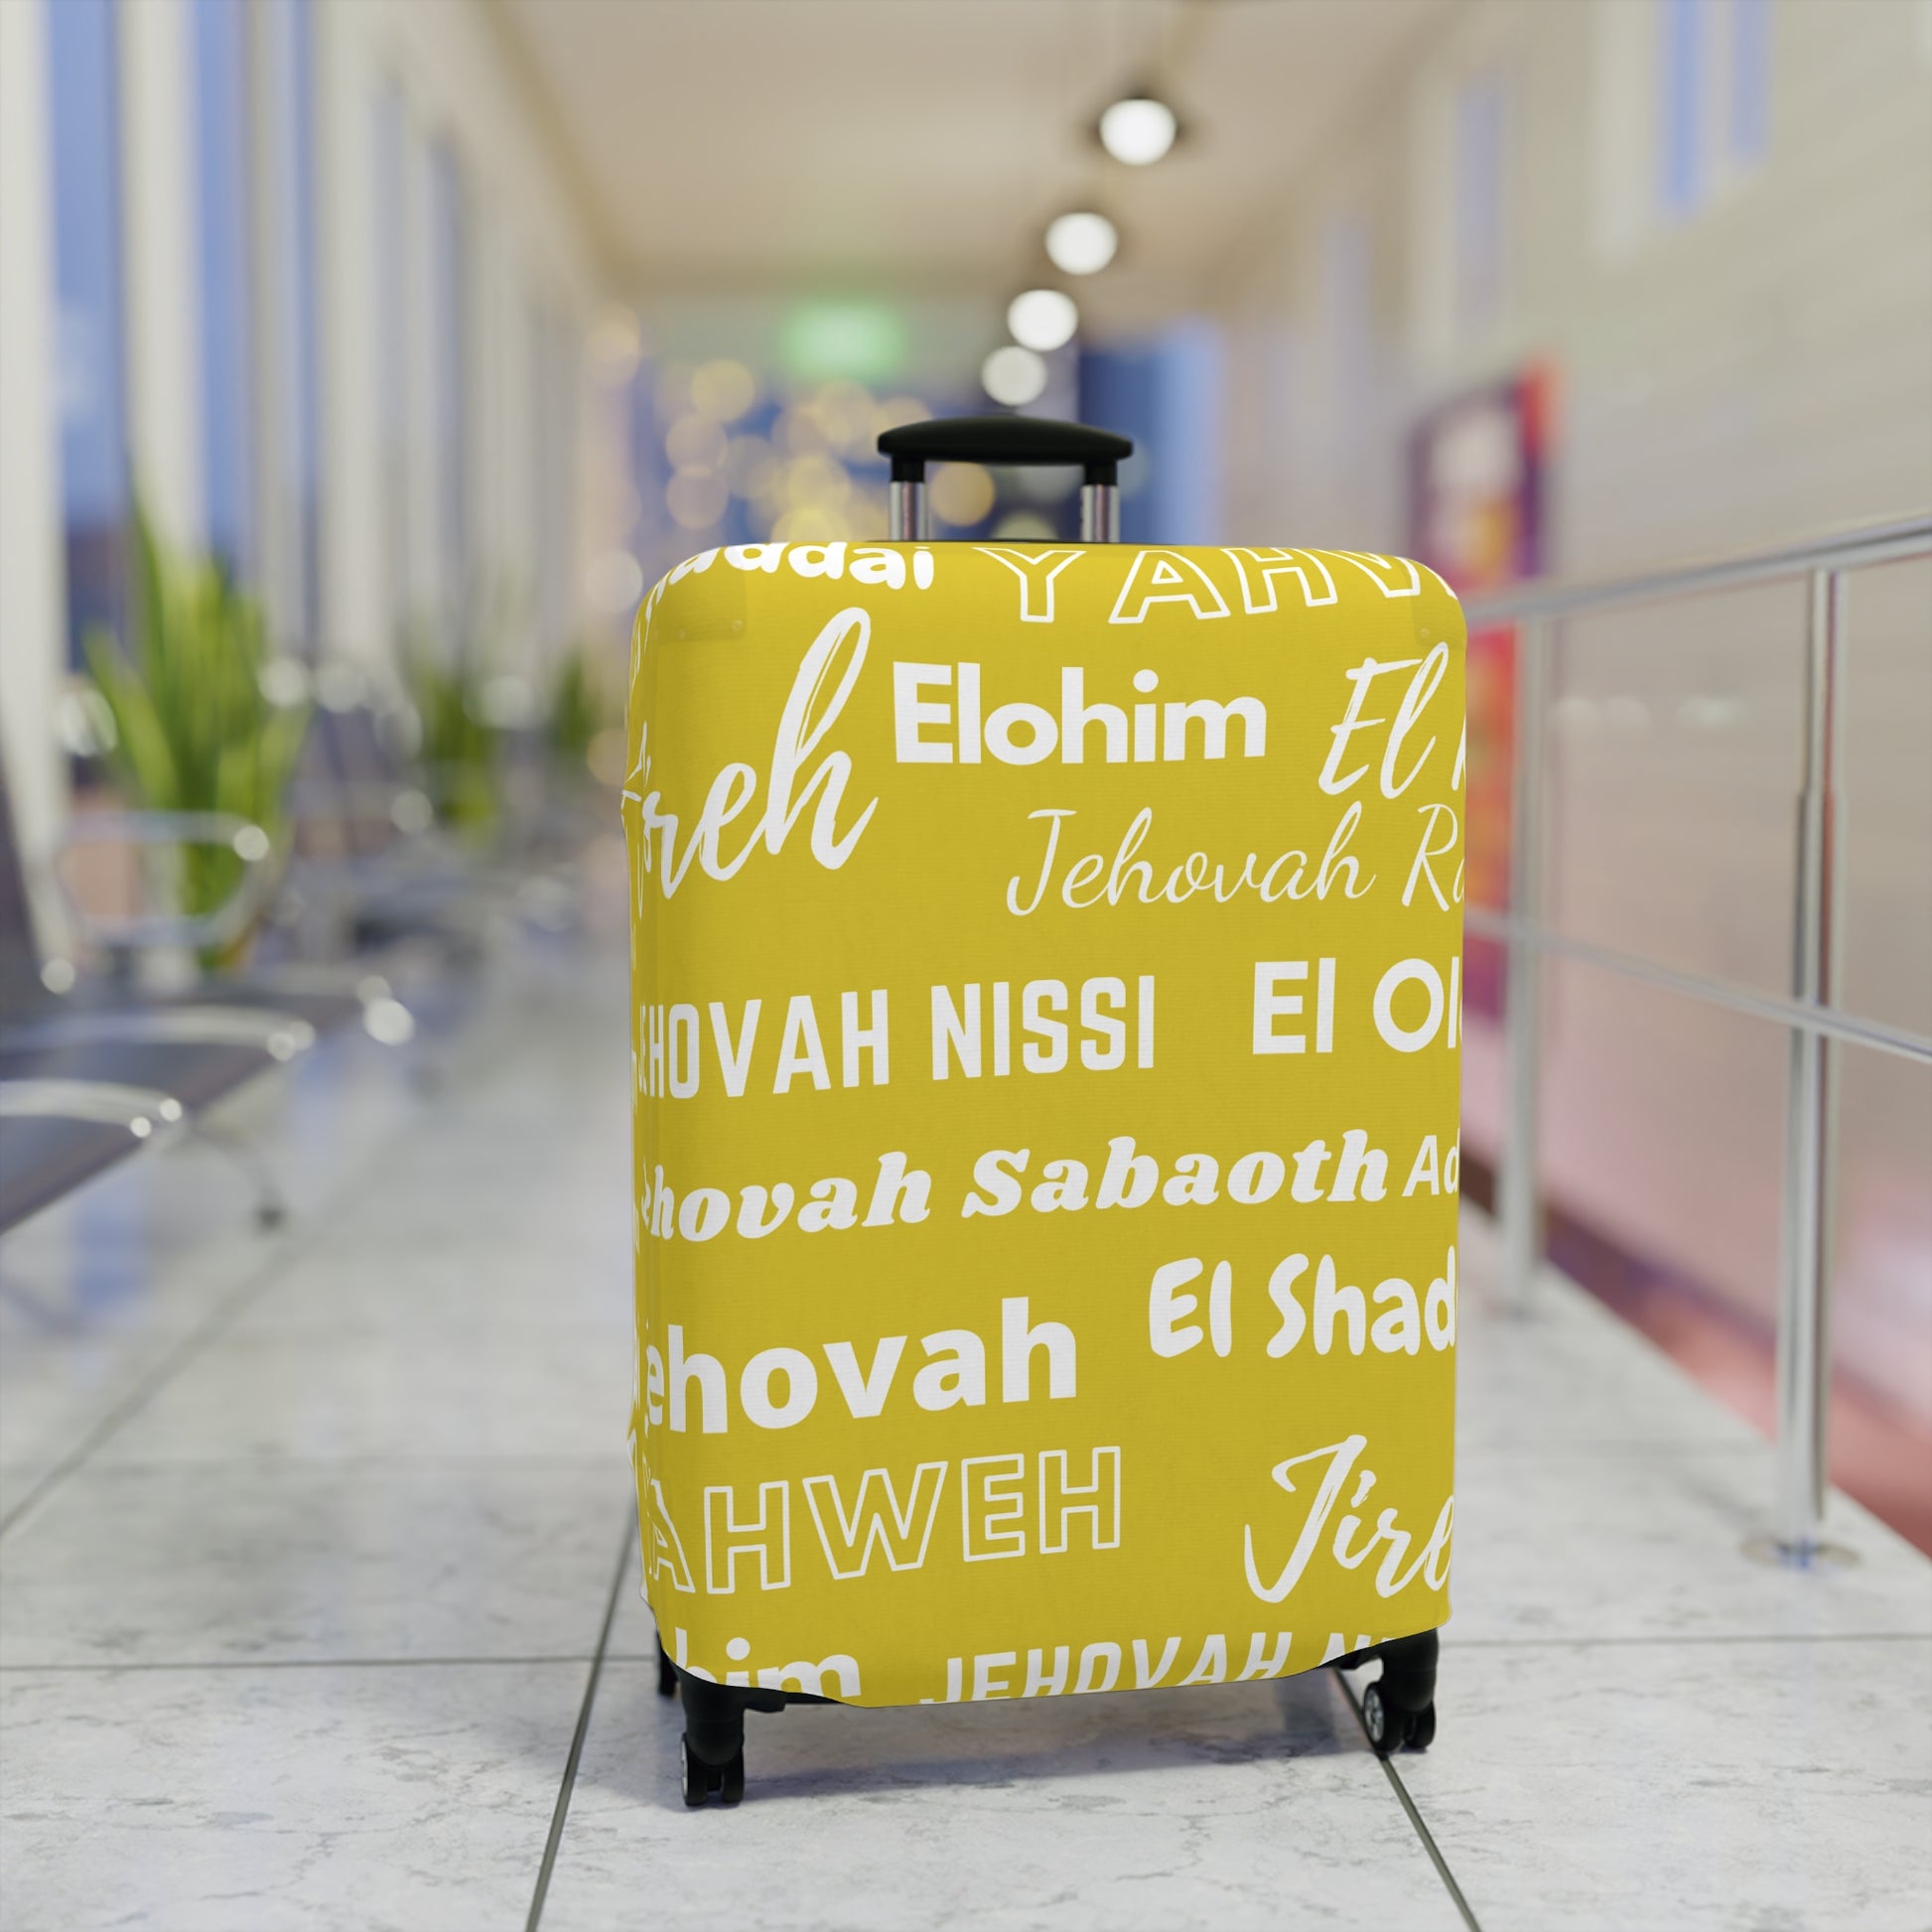 addai YAHW
Jireh Elohim El
Jehovah Ra
EHOVAH NISSI El Ol
ehovah Sabaoth Ad
ehovah El Shad
YAHWEH Jire
him JEHOVAH N